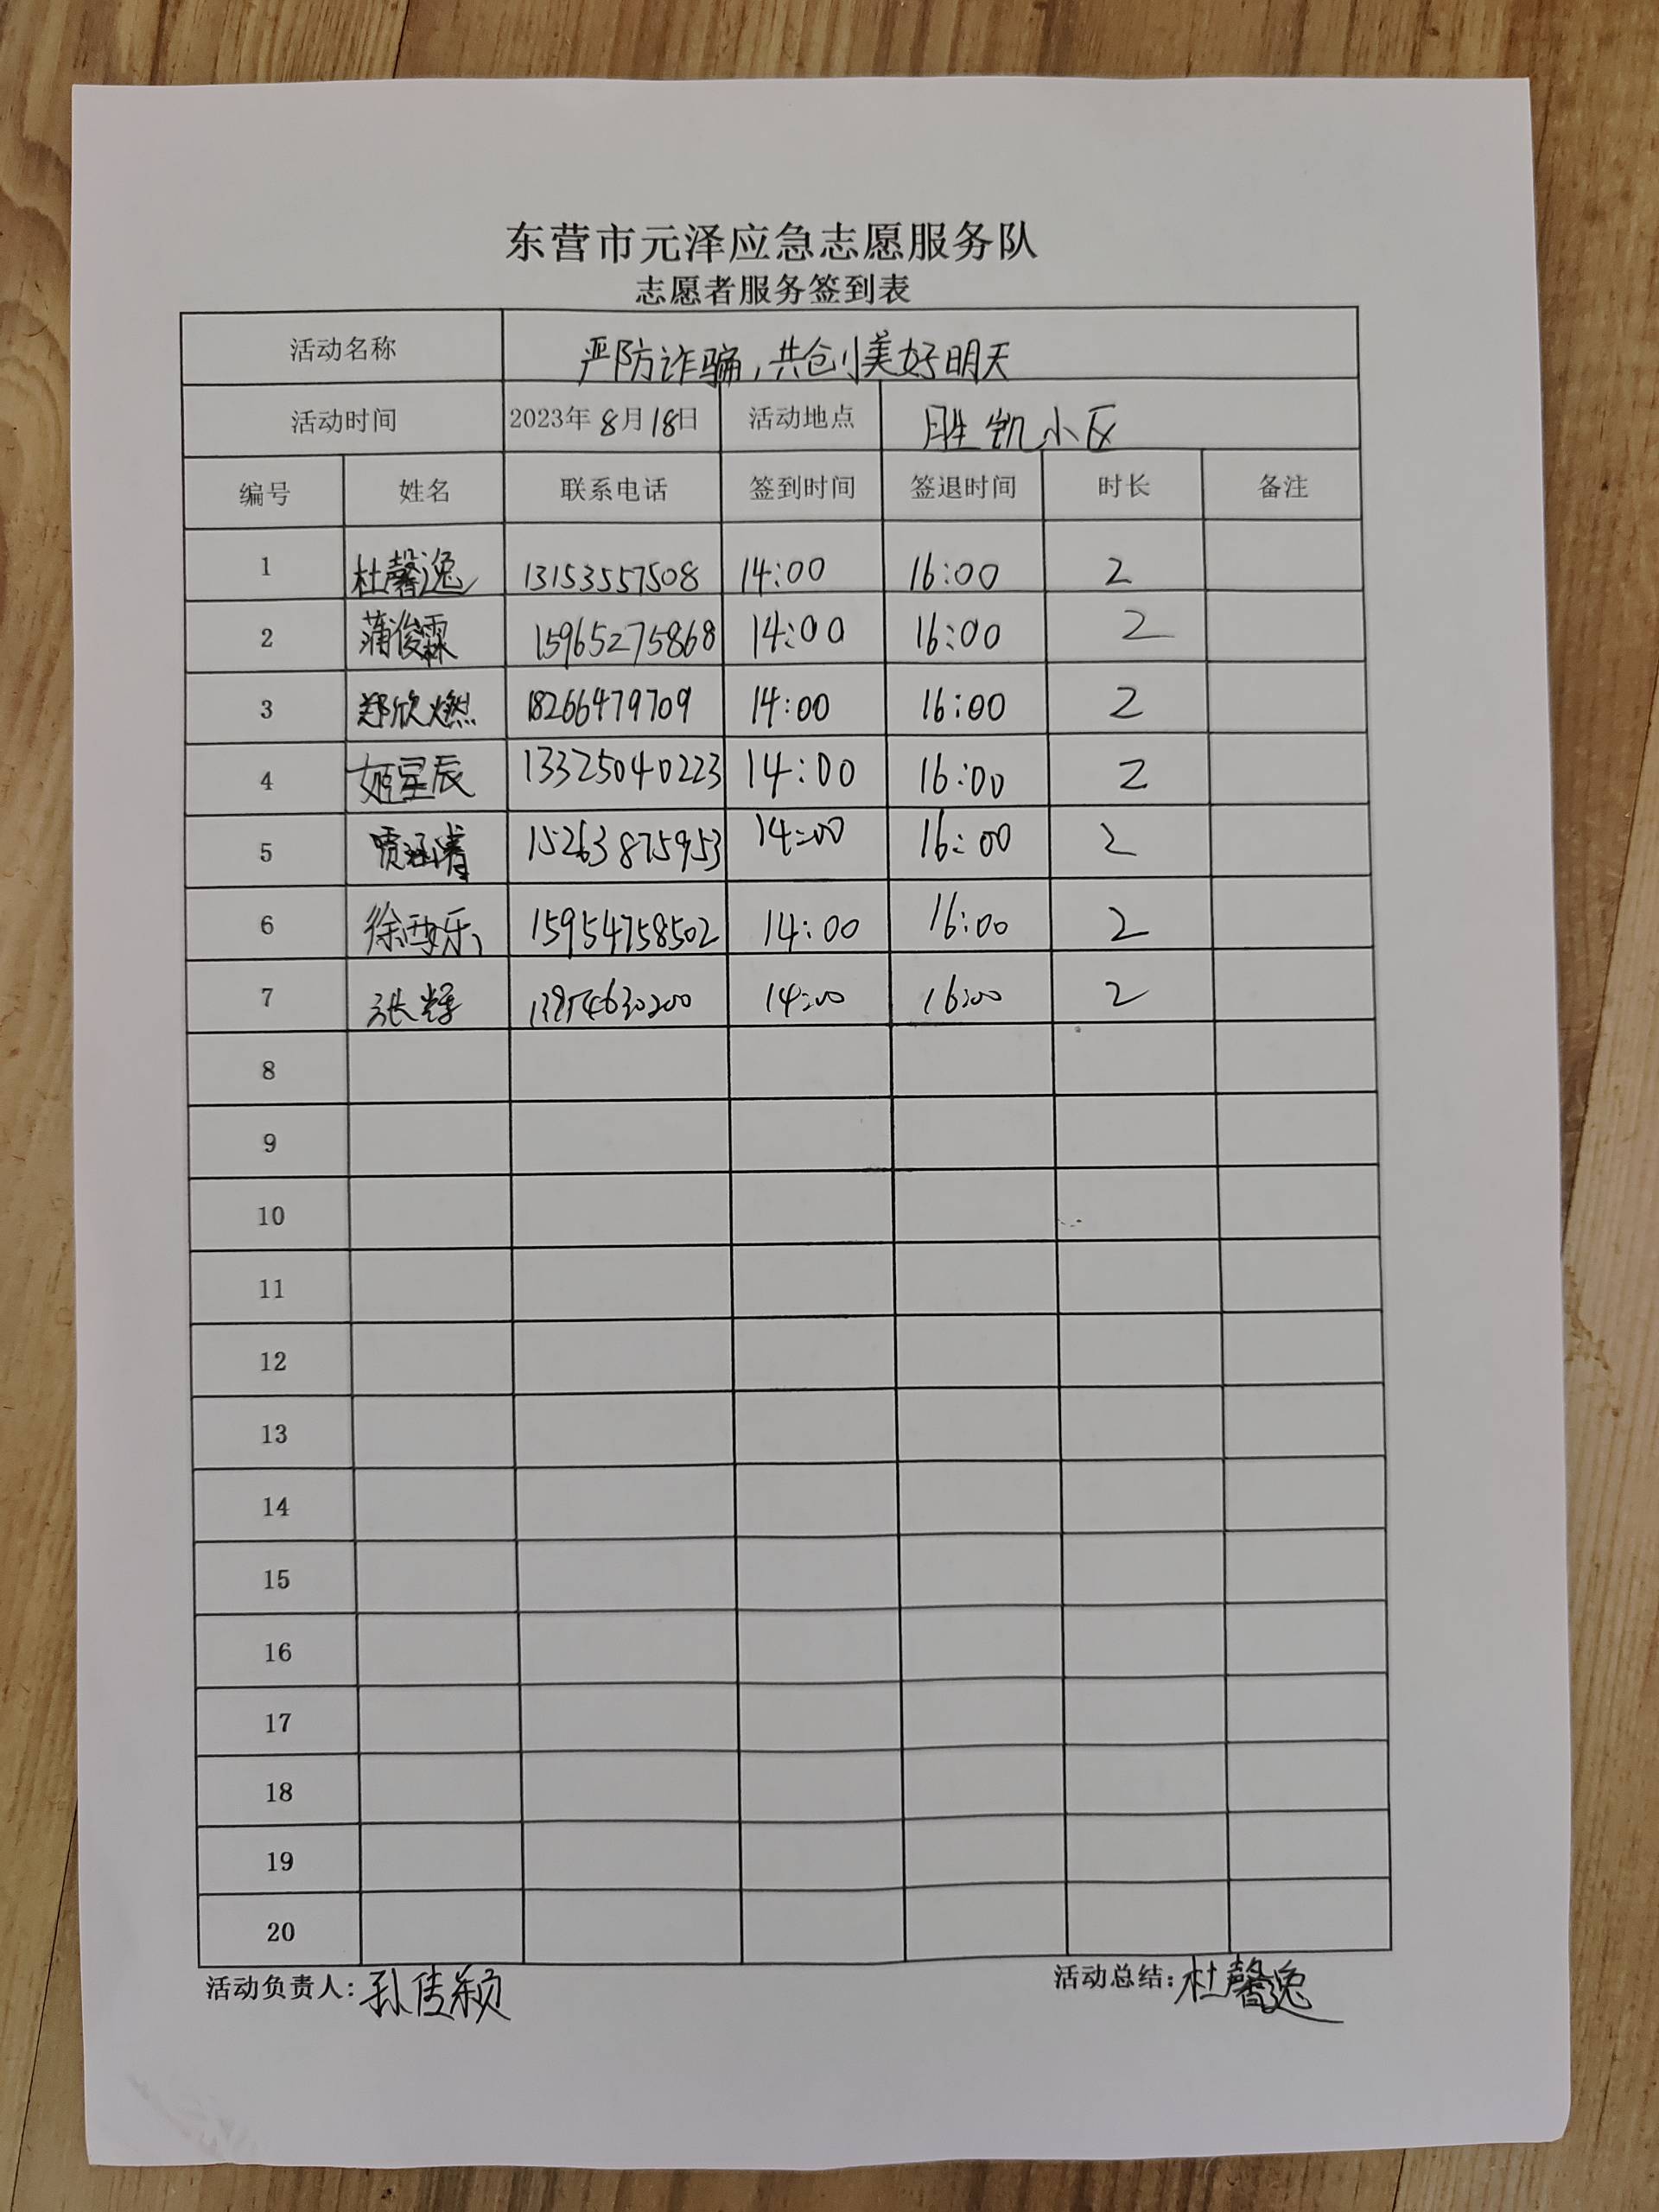 东营市元泽应急志愿服务队
志愿者服务签到表
活动名称 严防诈骗,共创美好明天
活动时间 2023年8月18日 活动地点 胜凯小区
编号 姓名 联系电话 签到时间 签退时间 时长 备注
1 杜馨逸 13153557508 14:00 16:00 2
2 蒲俊霖 15965275868 14:00 16:00 2
3 郑欣燃 18266479709 14:00 16:00 2
4 姬星辰 13325040223 14:00 16:00 2
5 贾涵 15263875953 14:00 16:00 2
6 徐 乐 15954758502 14:00 16:00 2
7 张辉 14:00 16:00 2
8
9
10
11
12
13
14
15
16
17
18
19
20
活动负责人:孙佳颖 活动总结:杜馨逸